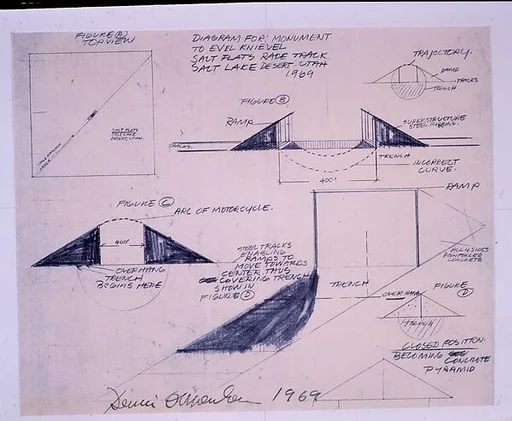 FIGURE (A)
TOPVIEW
DIAGRAM FOR MONUMENT
TO EVEL KNIEVEL
SALT FLATS RACE TRACK
SALT LAKE DESERT. UTAH
1969
TRAJECTORY.
RAMP
TRACKS
TRENCH
FIGURE (B)
RAMP
SUPERSTRUCTURE
STEEL
TRACKS.
TRENCH
INCORRECT
CURVE.
400'
RAMP
FIGURE (C)
ARC OF MOTORCYCLE.
400'
OVERHANG
TRENCH
BEGINS HERE
STEEL TRACKS
ENABLING
RAMPS TO
MOVE TOWARDS
CENTER THUS
COVERING TRENCH
SHOW IN
FIGURE (D)
TRENCH
ALL 4 SIDES
CONCRETE
OVERHANG
FIGURE (D)
TRENCH
CLOSED POSITION.
BECOMING CONCRETE
PYRAMID
Dennis Oppenheim 1969